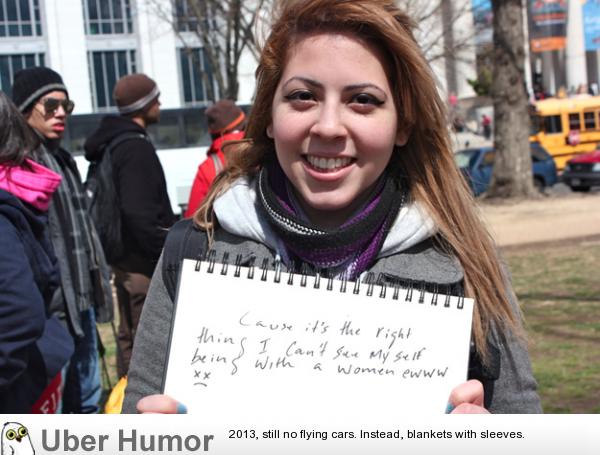 Cause it's the right
thing I can't see myself
being with a women ewww
xx
Uber Humor
2013, still no flying cars. Instead, blankets with sleeves.